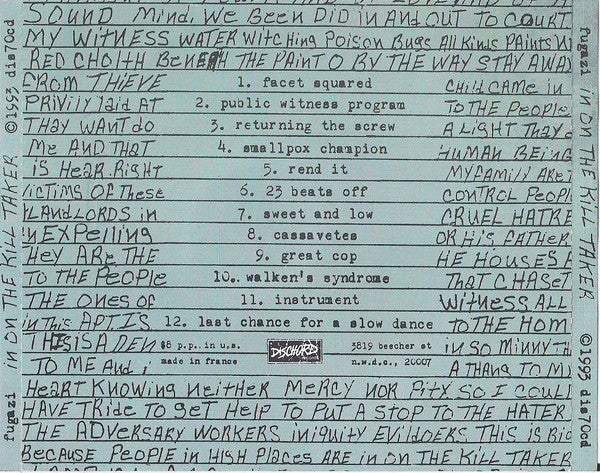 SOUND Mind, WE BEEN DID in And OUT TO COURT
MY WITNESS WATER WiTCHing POISON BUgS All Kinds PAiNTS
RED CHOLTH BENEATH THE PAiNT O BY THE WAY STAY AWAY
FROM THIEVE 1. facet squared CHILD CAME in
PRiViLY laid AT 2. public witness program TO THE PEOPLE
THAY WANT do 3. returning the screw A LIGHT THAY
ME AND THAT 4. smallpox champion HUMAN BEING
iS HEAR. RIGHT 5. rend it MY FAMiLY ARE
VICTIMS OF THESE 6. 23 beats off CONTROL PEOPL
LANdLORDS in 7. sweet and low CRUEL HATRE
in EXPElling 8. cassavetes OR HiS FATHER
THEY ARE THE 9. great cop HE HOUSES A
TO THE PEOPLE 10. walken's syndrome THAT CHASET
THE ONES OF 11. instrument WiTNESS ALL
in This APT. IS 12. last chance for a slow dance TO THE HOM
THIS IS A DEN $8 p.p. in u.s. DISCHORD 3819 beecher st in SO MinnY TH
TO ME And i made in france n.w.d.c. 20007 A THANG TO
HEART KNOWiNg NEiTHER MERCY NOR PiTY SO I COUL
HAVE TRide TO gET HELP TO PUT A STOP TO THE HATER
THE ADVERSARY WORKERS iniquiTY EVilDOERS THiS iS
BECAUSE PEOPLE iN HigH PLACES ARE iN ON THE KiLL TAKER
fugazi in ON THE KiLL TAKER ©1993 dis70cd
fugazi in ON THE KiLL TAKER ©1993 dis70cd